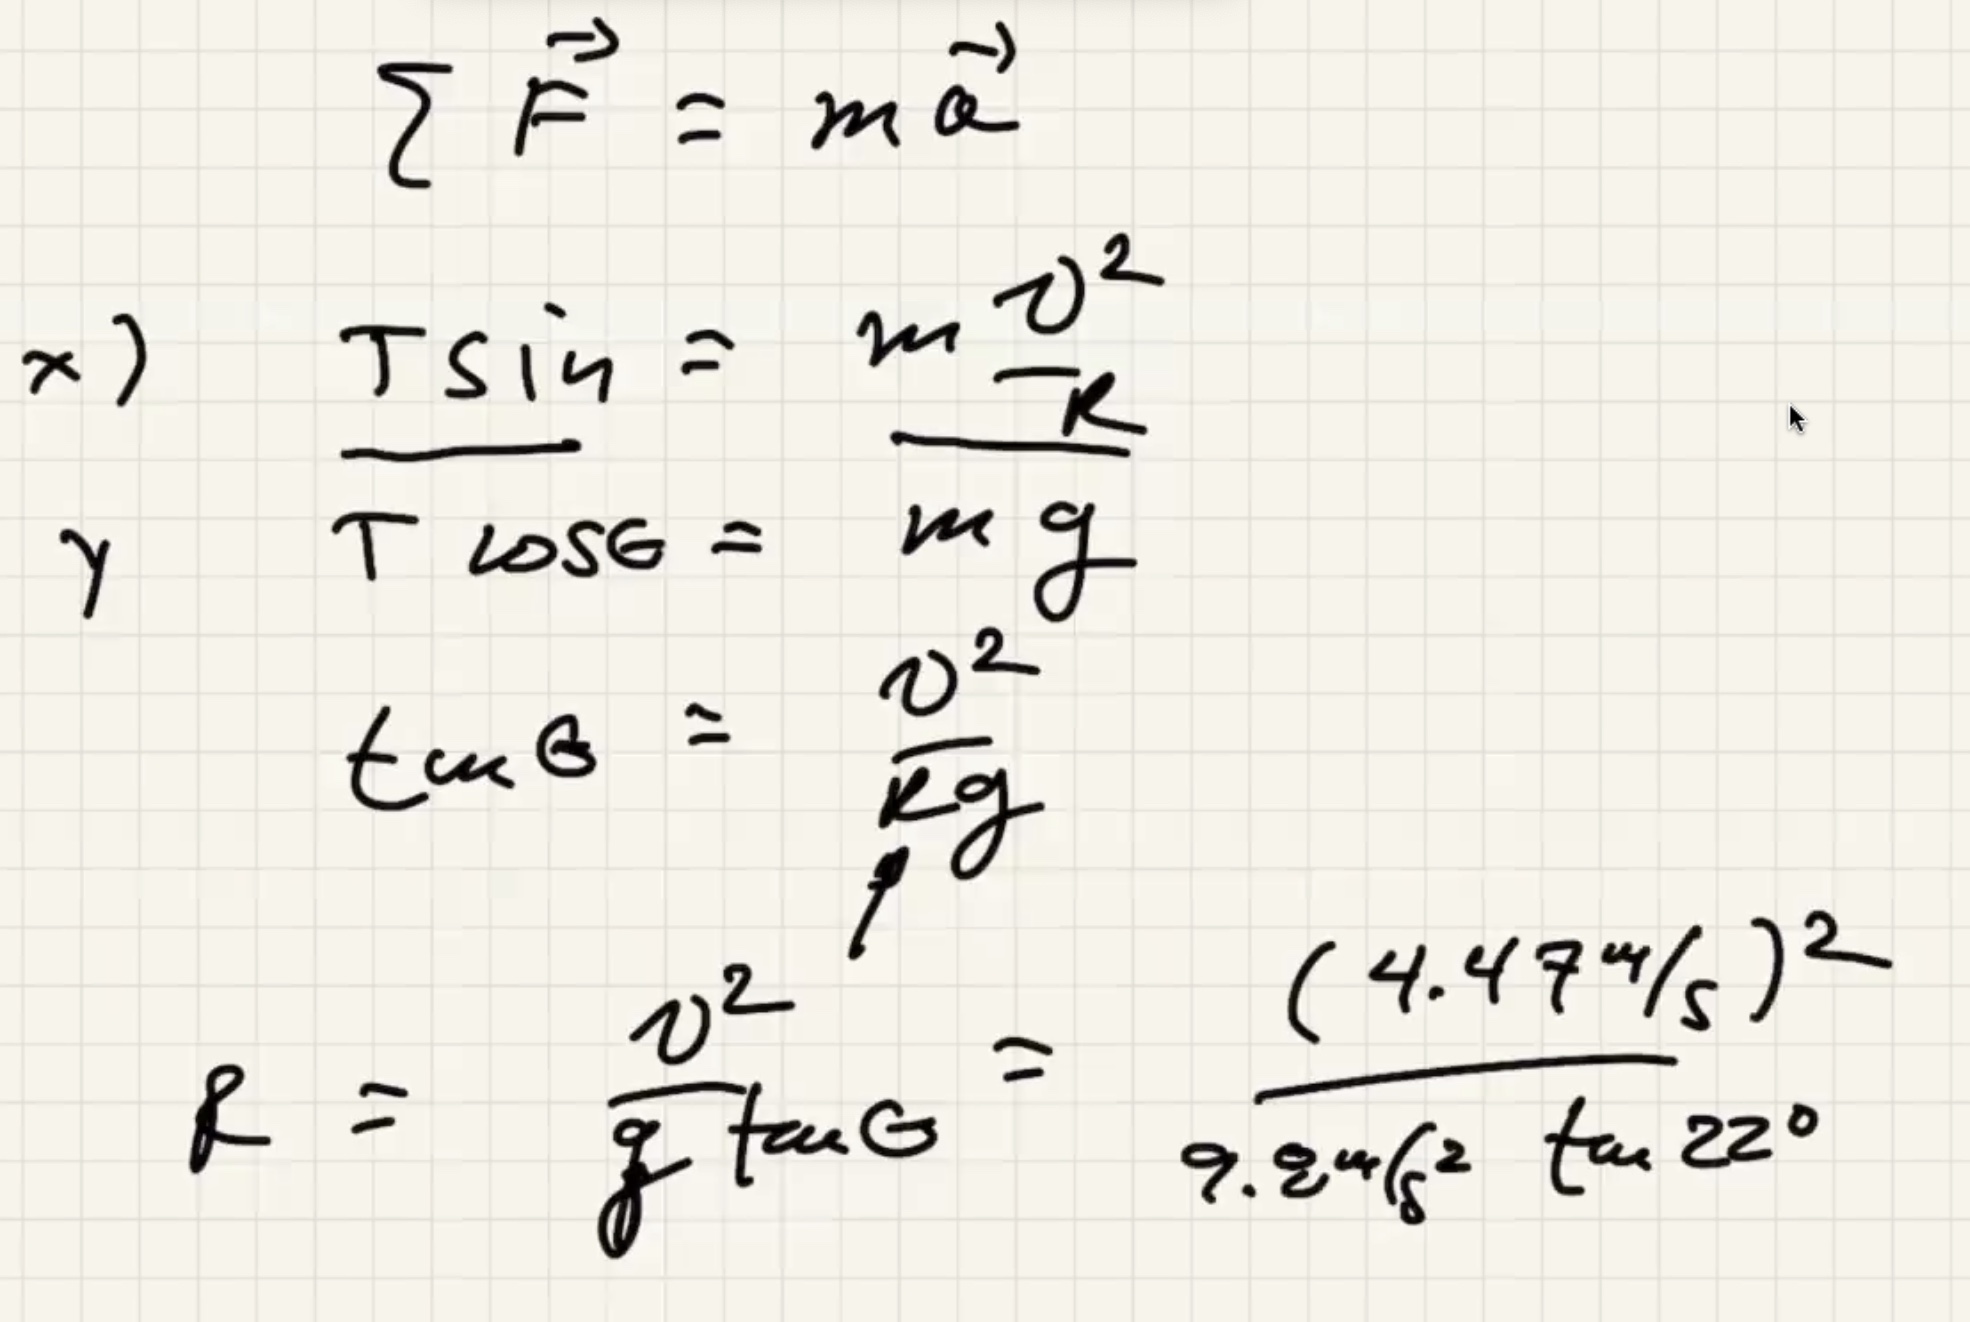 ∑ F⃗ = m a⃗
x) T sin = m v²/R
y T cosθ = m g
tan θ = v²/Rg
R = v²/(g tan θ) = (4.47 m/s)²/(9.8 m/s² tan 22°)